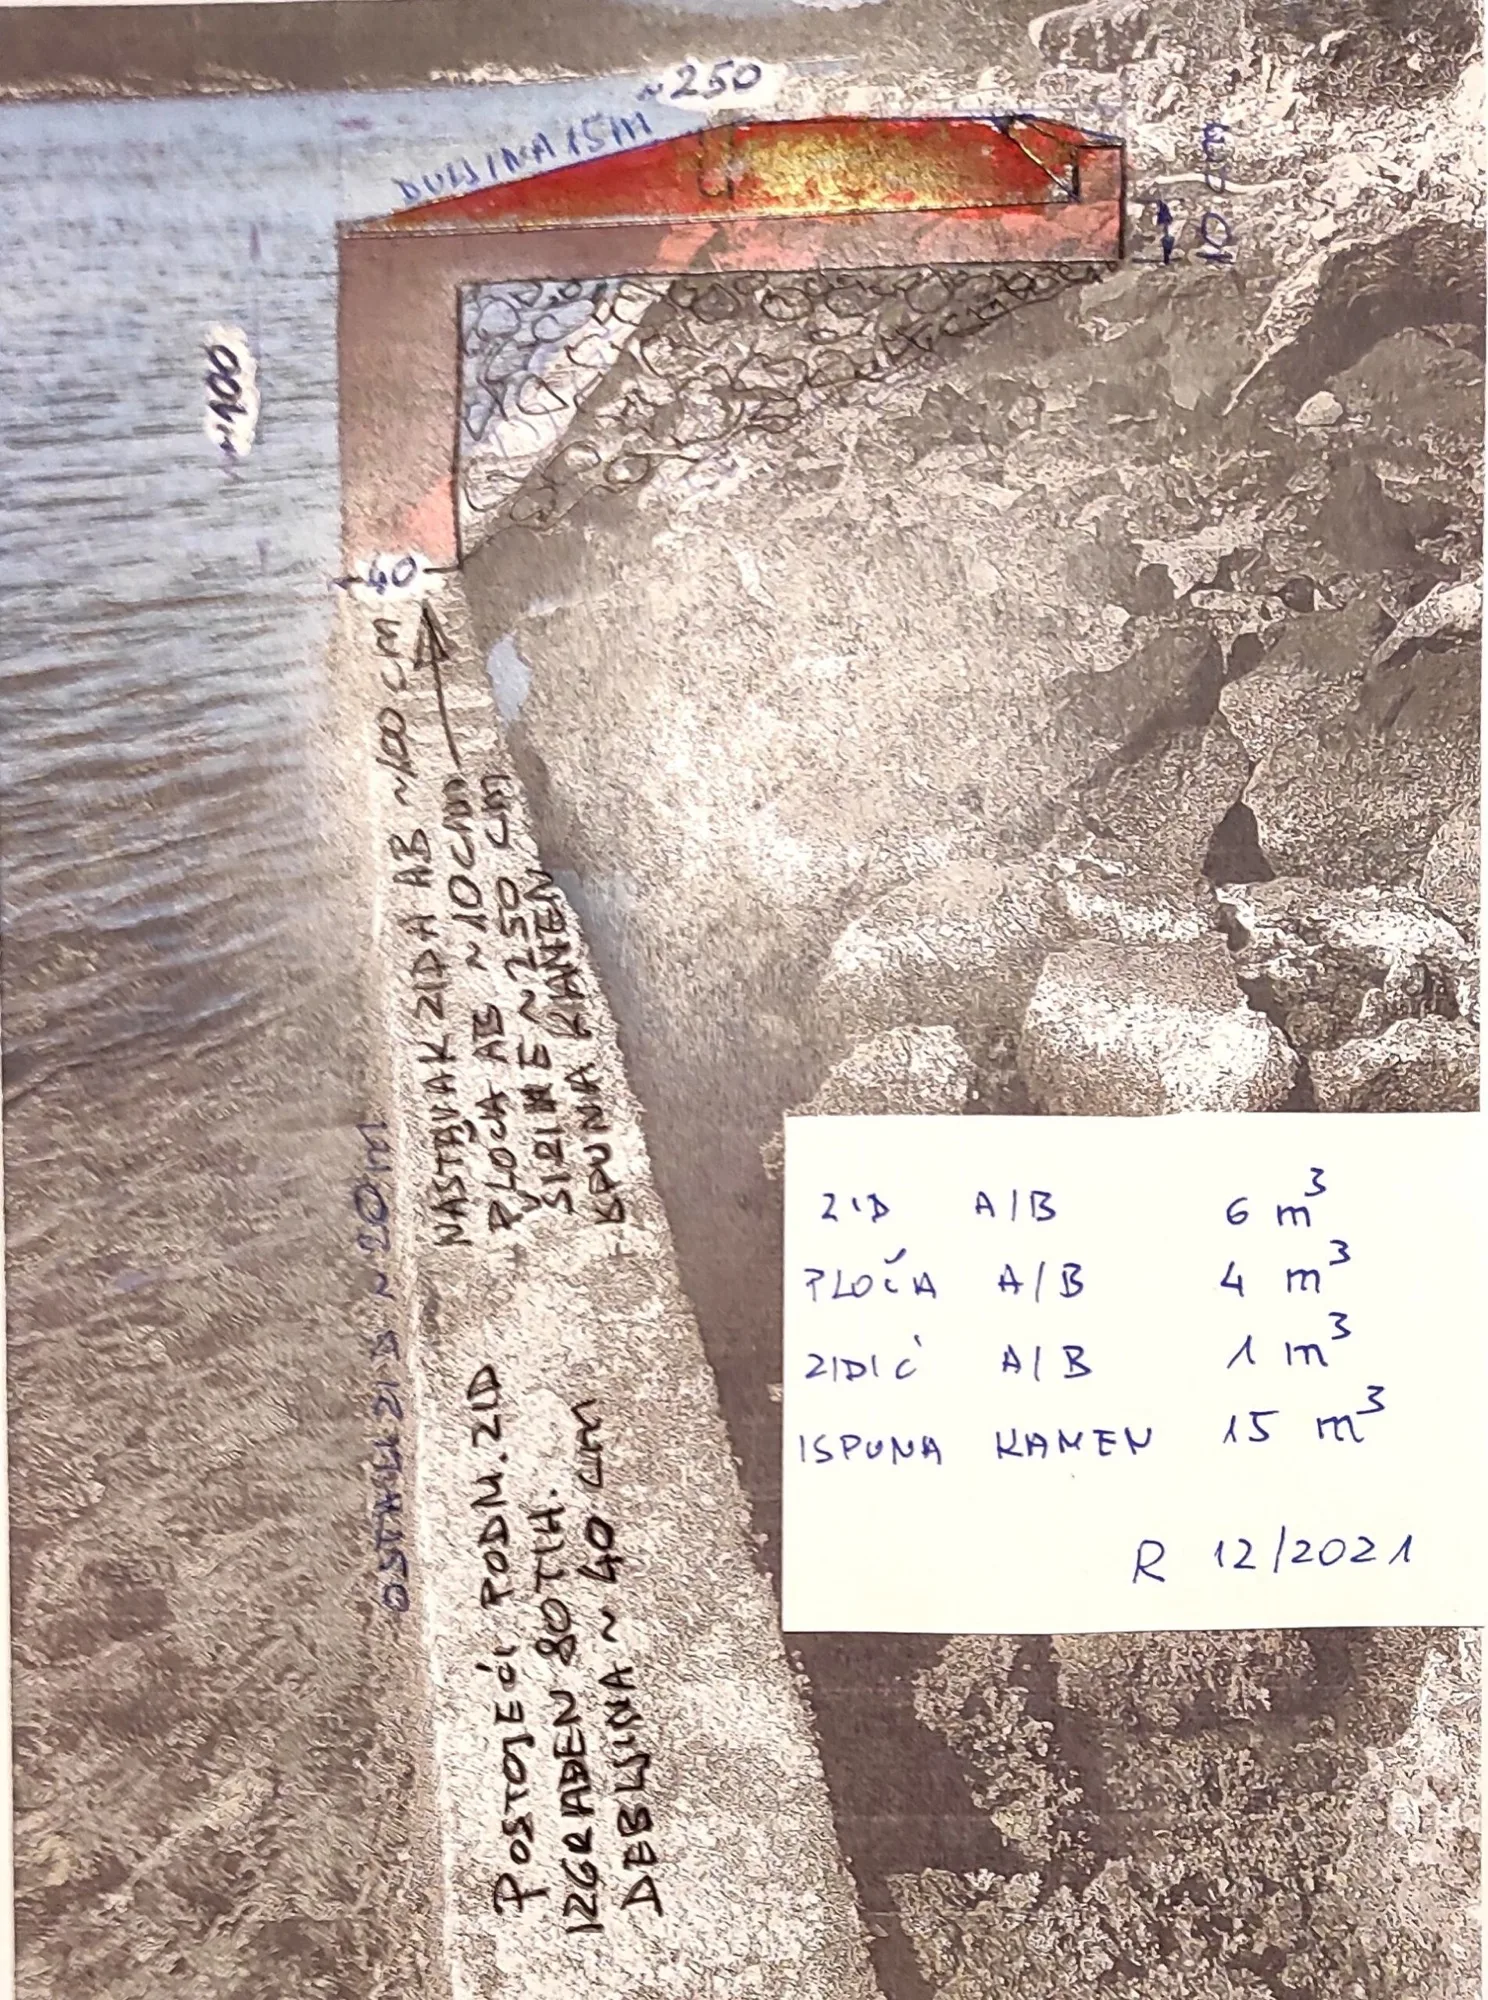 ~250
DULJINA 15M
10
~100
40
NASTAVAK ZIDA AB ~100 CM
PLOČA AB ~10CM
ŠIRINE ~250 CM
ISPUNA KAMEN
OSTALI ZID ~20m
POSTOJEĆI PODM. ZID
IZGRAĐEN 80TIH.
DEBLJINA ~ 40 CM
ZID A/B 6 m³
PLOČA A/B 4 m³
ZIDIĆ A/B 1 m³
ISPUNA KAMEN 15 m³
R 12/2021